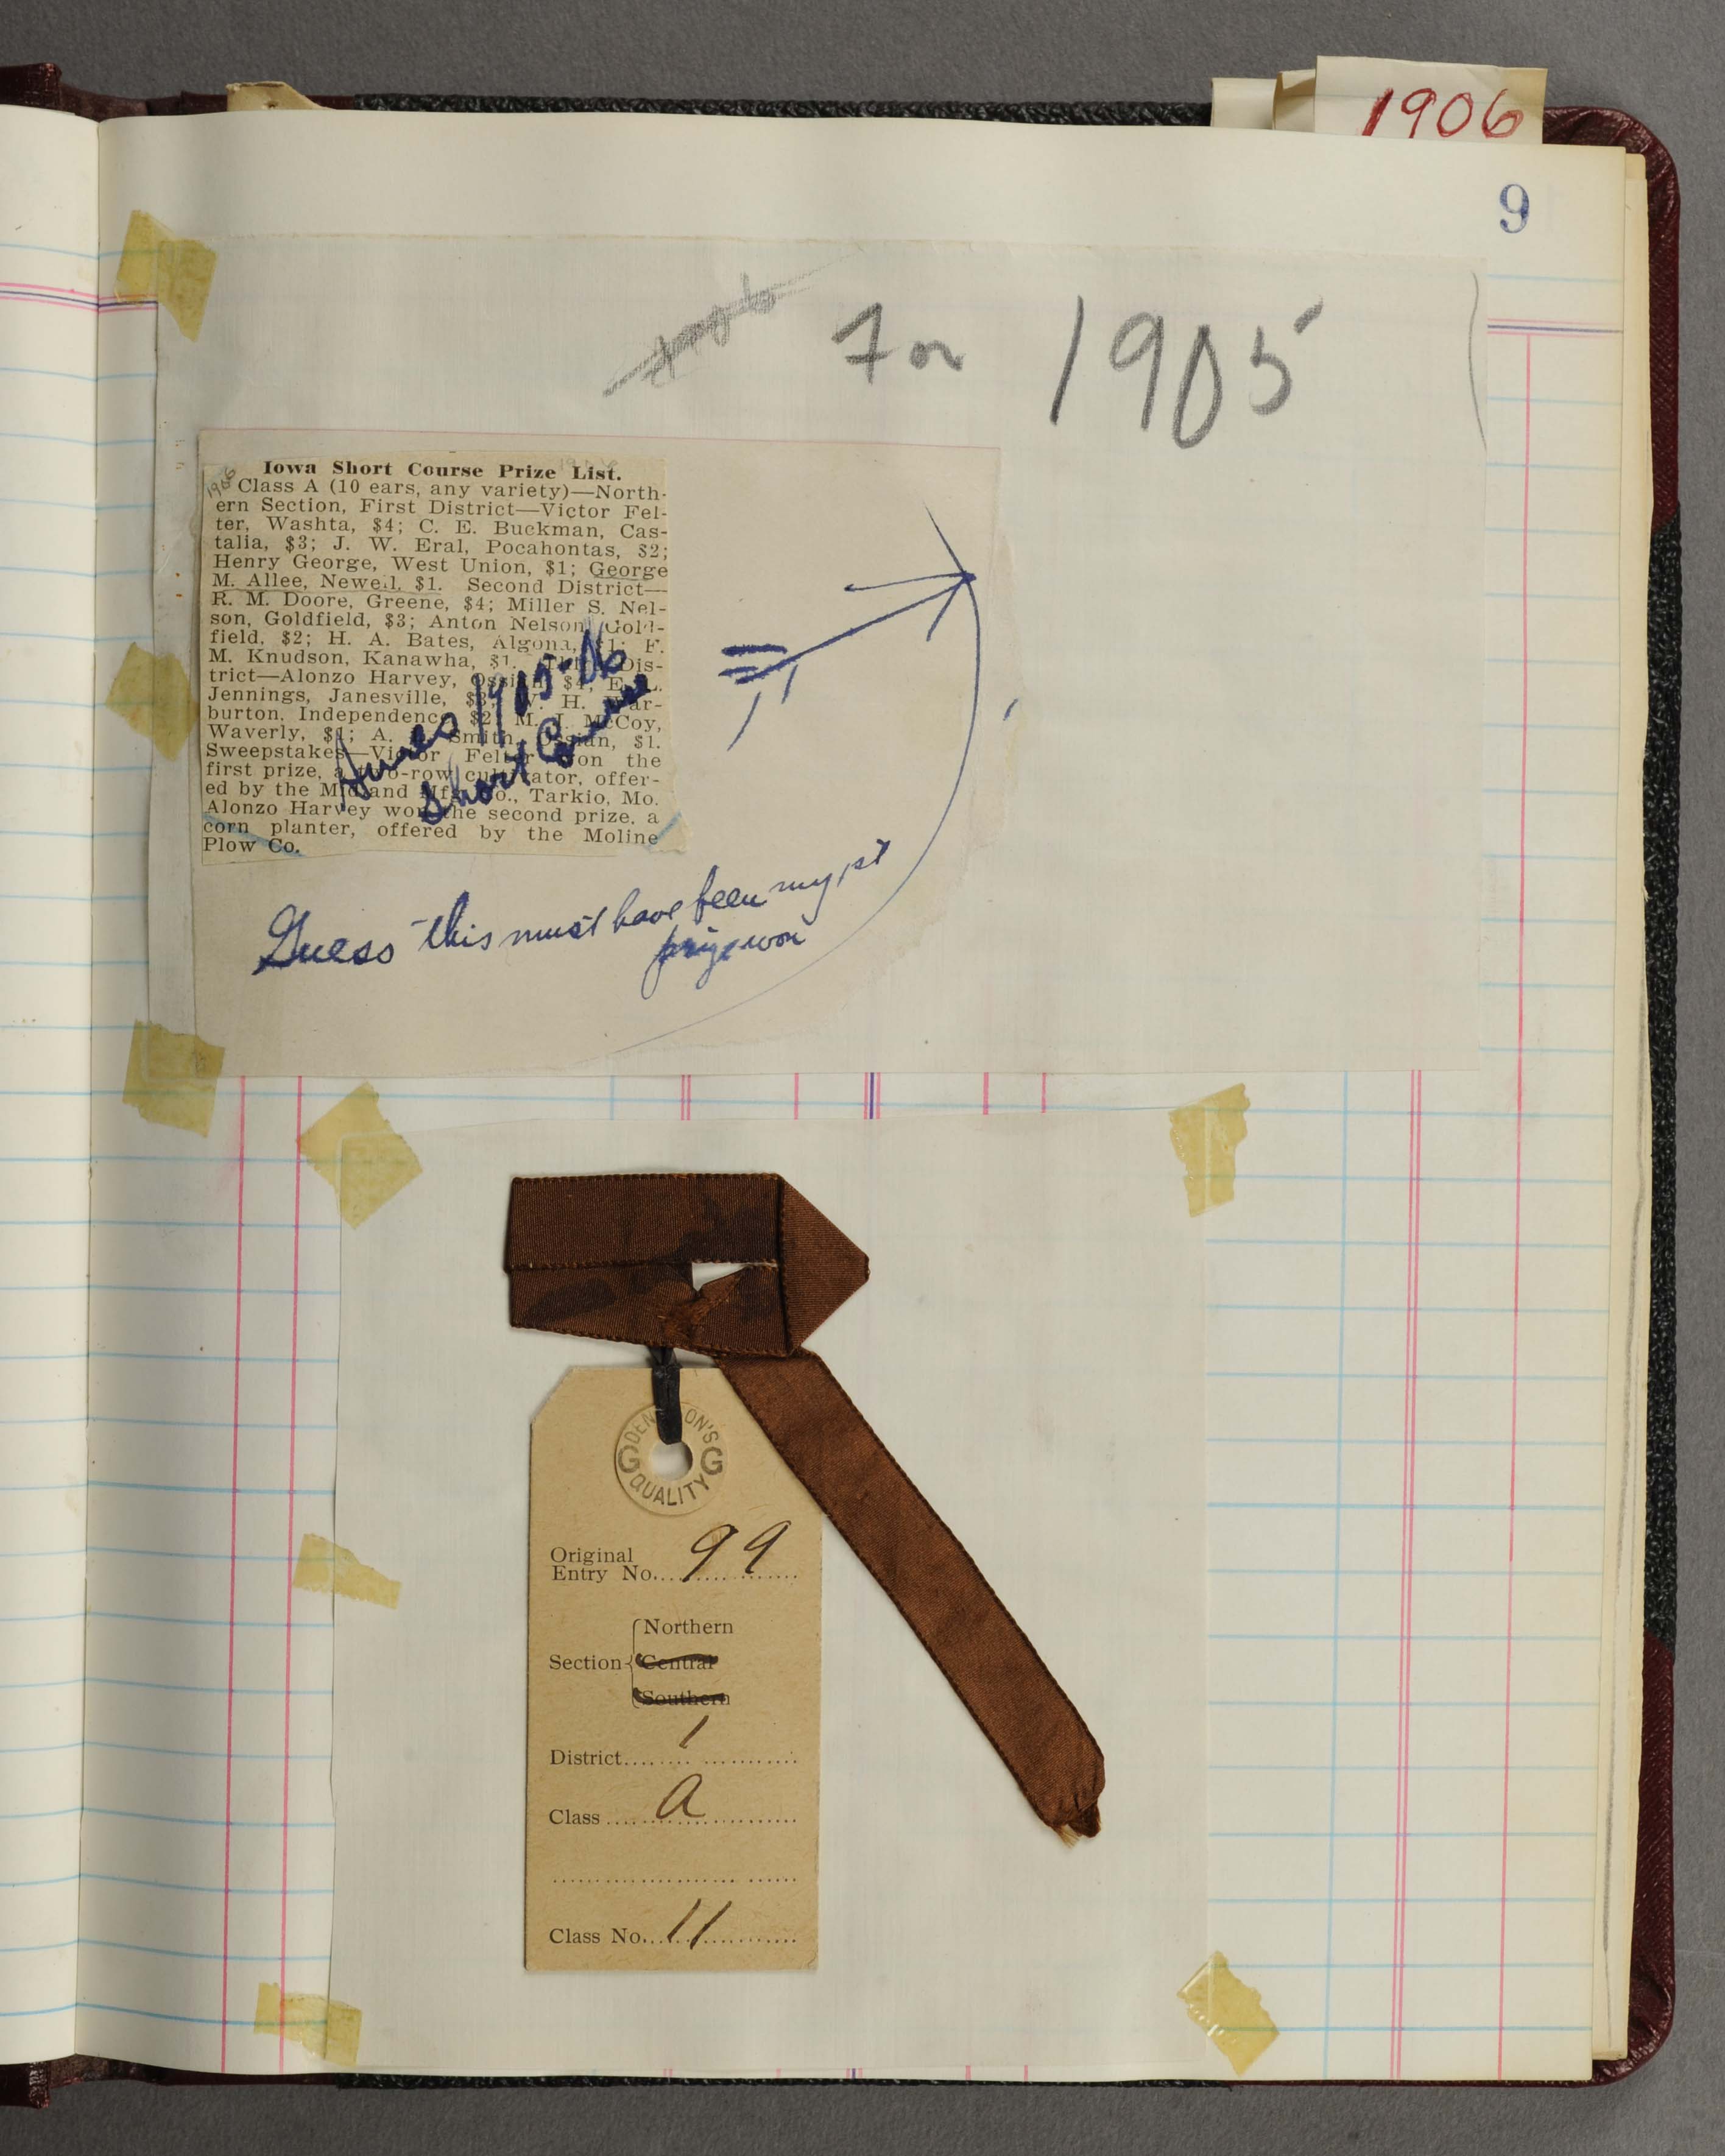 1906
9
For 1905
1906
Iowa Short Course Prize List.
Class A (10 ears, any variety)—North-
ern Section, First District—Victor Fel-
ter, Washta, $4; C. E. Buckman, Cas-
talia, $3; J. W. Eral, Pocahontas, $2;
Henry George, West Union, $1; George
M. Allee, Newell, $1. Second District—
R. M. Doore, Greene, $4; Miller S. Nel-
son, Goldfield, $3; Anton Nelson, Gold-
field, $2; H. A. Bates, Algona, $1; F.
M. Knudson, Kanawha, $1. Third Dis-
trict—Alonzo Harvey, Ossian, $4; E. L.
Jennings, Janesville, $3; W. H. War-
burton, Independence, $2; M. J. McCoy,
Waverly, $1; A. Smith, Ossian, $1.
Sweepstakes—Victor Felter won the
first prize, a two-row cultivator, offer-
ed by the Midland Mfg. Co., Tarkio, Mo.
Alonzo Harvey won the second prize, a
corn planter, offered by the Moline
Plow Co.
Ames 1905-06
Short Course
Guess this must have been my 1st
prize won
DENNISON'S
G G
QUALITY
Original
Entry No. 99
Northern
Section Central
Southern
District 1
Class A
Class No. 11